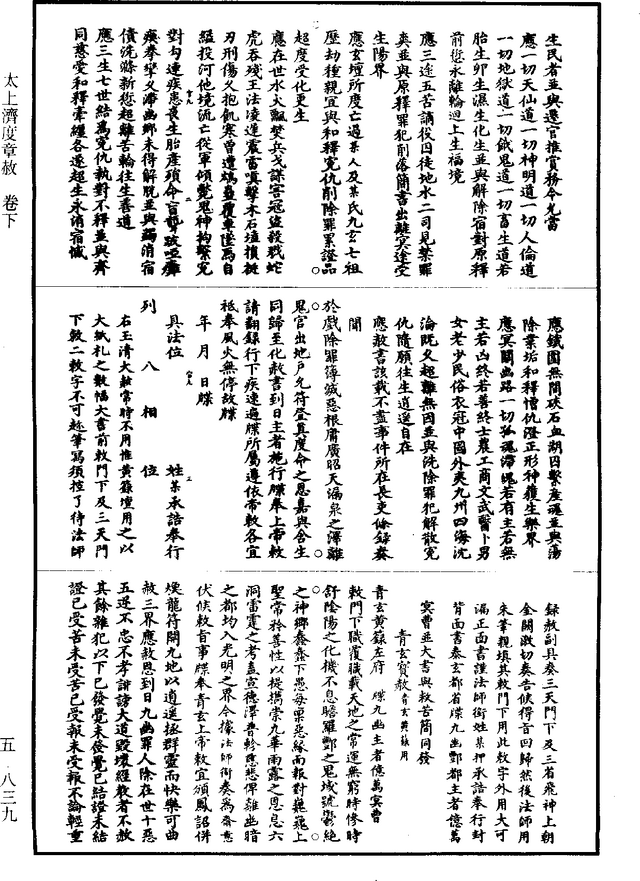 太上濟度章赦　卷下
五－八三九
生民者並與遷官推賞務令允當
應一切天仙道一切神明道一切人倫道
一切地獄道一切餓鬼道一切畜生道若
胎生卵生濕生化生並與解除宿對原釋
前愆永離輪迴上生福境
應三途五苦謫役囚徒地水二司見繫罪
𡙇並與原釋罪犯削落簡書出離冥途受
生陽界
應玄壇所度亡過某人及某氏九玄七祖
歷劫種親宜與和釋冤仇削除罪累證品
超度受化更生
應在世水火飄焚兵戈謀害冠盜殺戮蛇
虎吞殘王法凌遲震雷嗔擊木石壇損
刃刑傷久抱飢寒曾遭鴆蠱覆車墜馬自
縊投河他境流亡從軍傾斃鬼神拘繫冤
對勾連疾患喪生胎產殞命盲聾跛啞癰
痍拳攣久滯幽鄉未得解脫並與蠲消宿
債洗滌新愆超離苦輪往生善道
應三生七世結為冤仇執對不釋並與齊
同慈愛和釋牽纏各遂超生永消宿憾
應鐵圍無間硤石血湖囚繫產魂並與蕩
除業垢和釋憎仇澄正形神獲生樂界
應冥關幽路一切孤魂滯魄若有主若無
主若凶終若善終士農工商文武醫卜男
女老少民俗衣冠中國外夷九州四海沈
淪既久超離無因並與洗除罪犯解散冤
仇隨願往生逍遙自在
應赦書該載不盡事件所在長吏條錄奏
聞
於戲除罪簿滅惡根膺廣昭天漏泉之澤離
鬼官出地戶允符登真度命之恩嘉與含生
同歸至化赦書到日主者施行牒奉上帝敕
請翻錄行下疾速遍牒所屬遵依帝敕各宜
祗奉風火無停故牒
年　月　日牒
具法位　姓某承誥奉行
列　八　相　位
右玉清大赦常時不用惟黃籙壇用之以
大紙札之數幅大書前敕門下及三天門
下敕二敕字不可趁筆寫須控了待法師
錄赦副具奏三天門下及三省飛神上朝
金闕激切奏告候得音回歸然後法師用
朱筆親填其敕門下用此敕字外用大可
漏正面書謹法師銜姓某押承誥奉行封
背面書泰玄都省牒九幽酆都主者億萬
冥曹並大書與敕告同發
青玄寶赦青玄黃籙用
青玄黃籙左府　牒九幽主者億萬冥曹
敕門下職覆職載天地之常運無窮時慘時
舒陰陽之化機不息瞻羅酆之鬼域號鬱絕
之神鄉蠢蠢下愚每稟惡緣而報對巍巍上
聖常矜善性以提攜崇九華雨露之恩息六
洞雷霆之考盍宣德澤普軫慈悲俾離幽暗
之都均入光明之界今據法師銜奏為齋意
伏候敕旨事牒奉青玄上帝敕宜頒鳳詔併
煥龍符開九地以逍遙拯群靈而快樂可曲
赦三界應赦恩到日九幽罪人除在世十惡
五逆不忠不孝誹謗大道毀壞經教者不赦
其餘雜犯以下已發覺未發覺已結證未結
證已受苦未受苦已受報未受報不論輕重